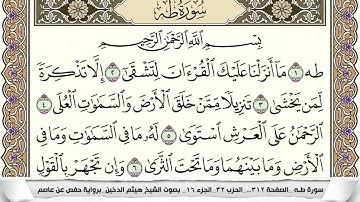 سورة طه
بسم الله الرحمن الرحيم
طه ١ مَا أَنزَلْنَا عَلَيْكَ الْقُرْءَانَ لِتَشْقَىٰ ٢ إِلَّا تَذْكِرَةً
لِّمَن يَخْشَىٰ ٣ تَنزِيلًا مِّمَّنْ خَلَقَ الْأَرْضَ وَالسَّمَٰوَٰتِ الْعُلَى ٤
الرَّحْمَٰنُ عَلَى الْعَرْشِ اسْتَوَىٰ ٥ لَهُ مَا فِي السَّمَٰوَٰتِ وَمَا فِي
الْأَرْضِ وَمَا بَيْنَهُمَا وَمَا تَحْتَ الثَّرَىٰ ٦ وَإِن تَجْهَرْ بِالْقَوْلِ
سورة طـه _الصفحة ٣١٢_ الحزب ٣٢_الجزء ١٦_ بصوت الشيخ هيثم الدخين_ برواية حفص عن عاصم